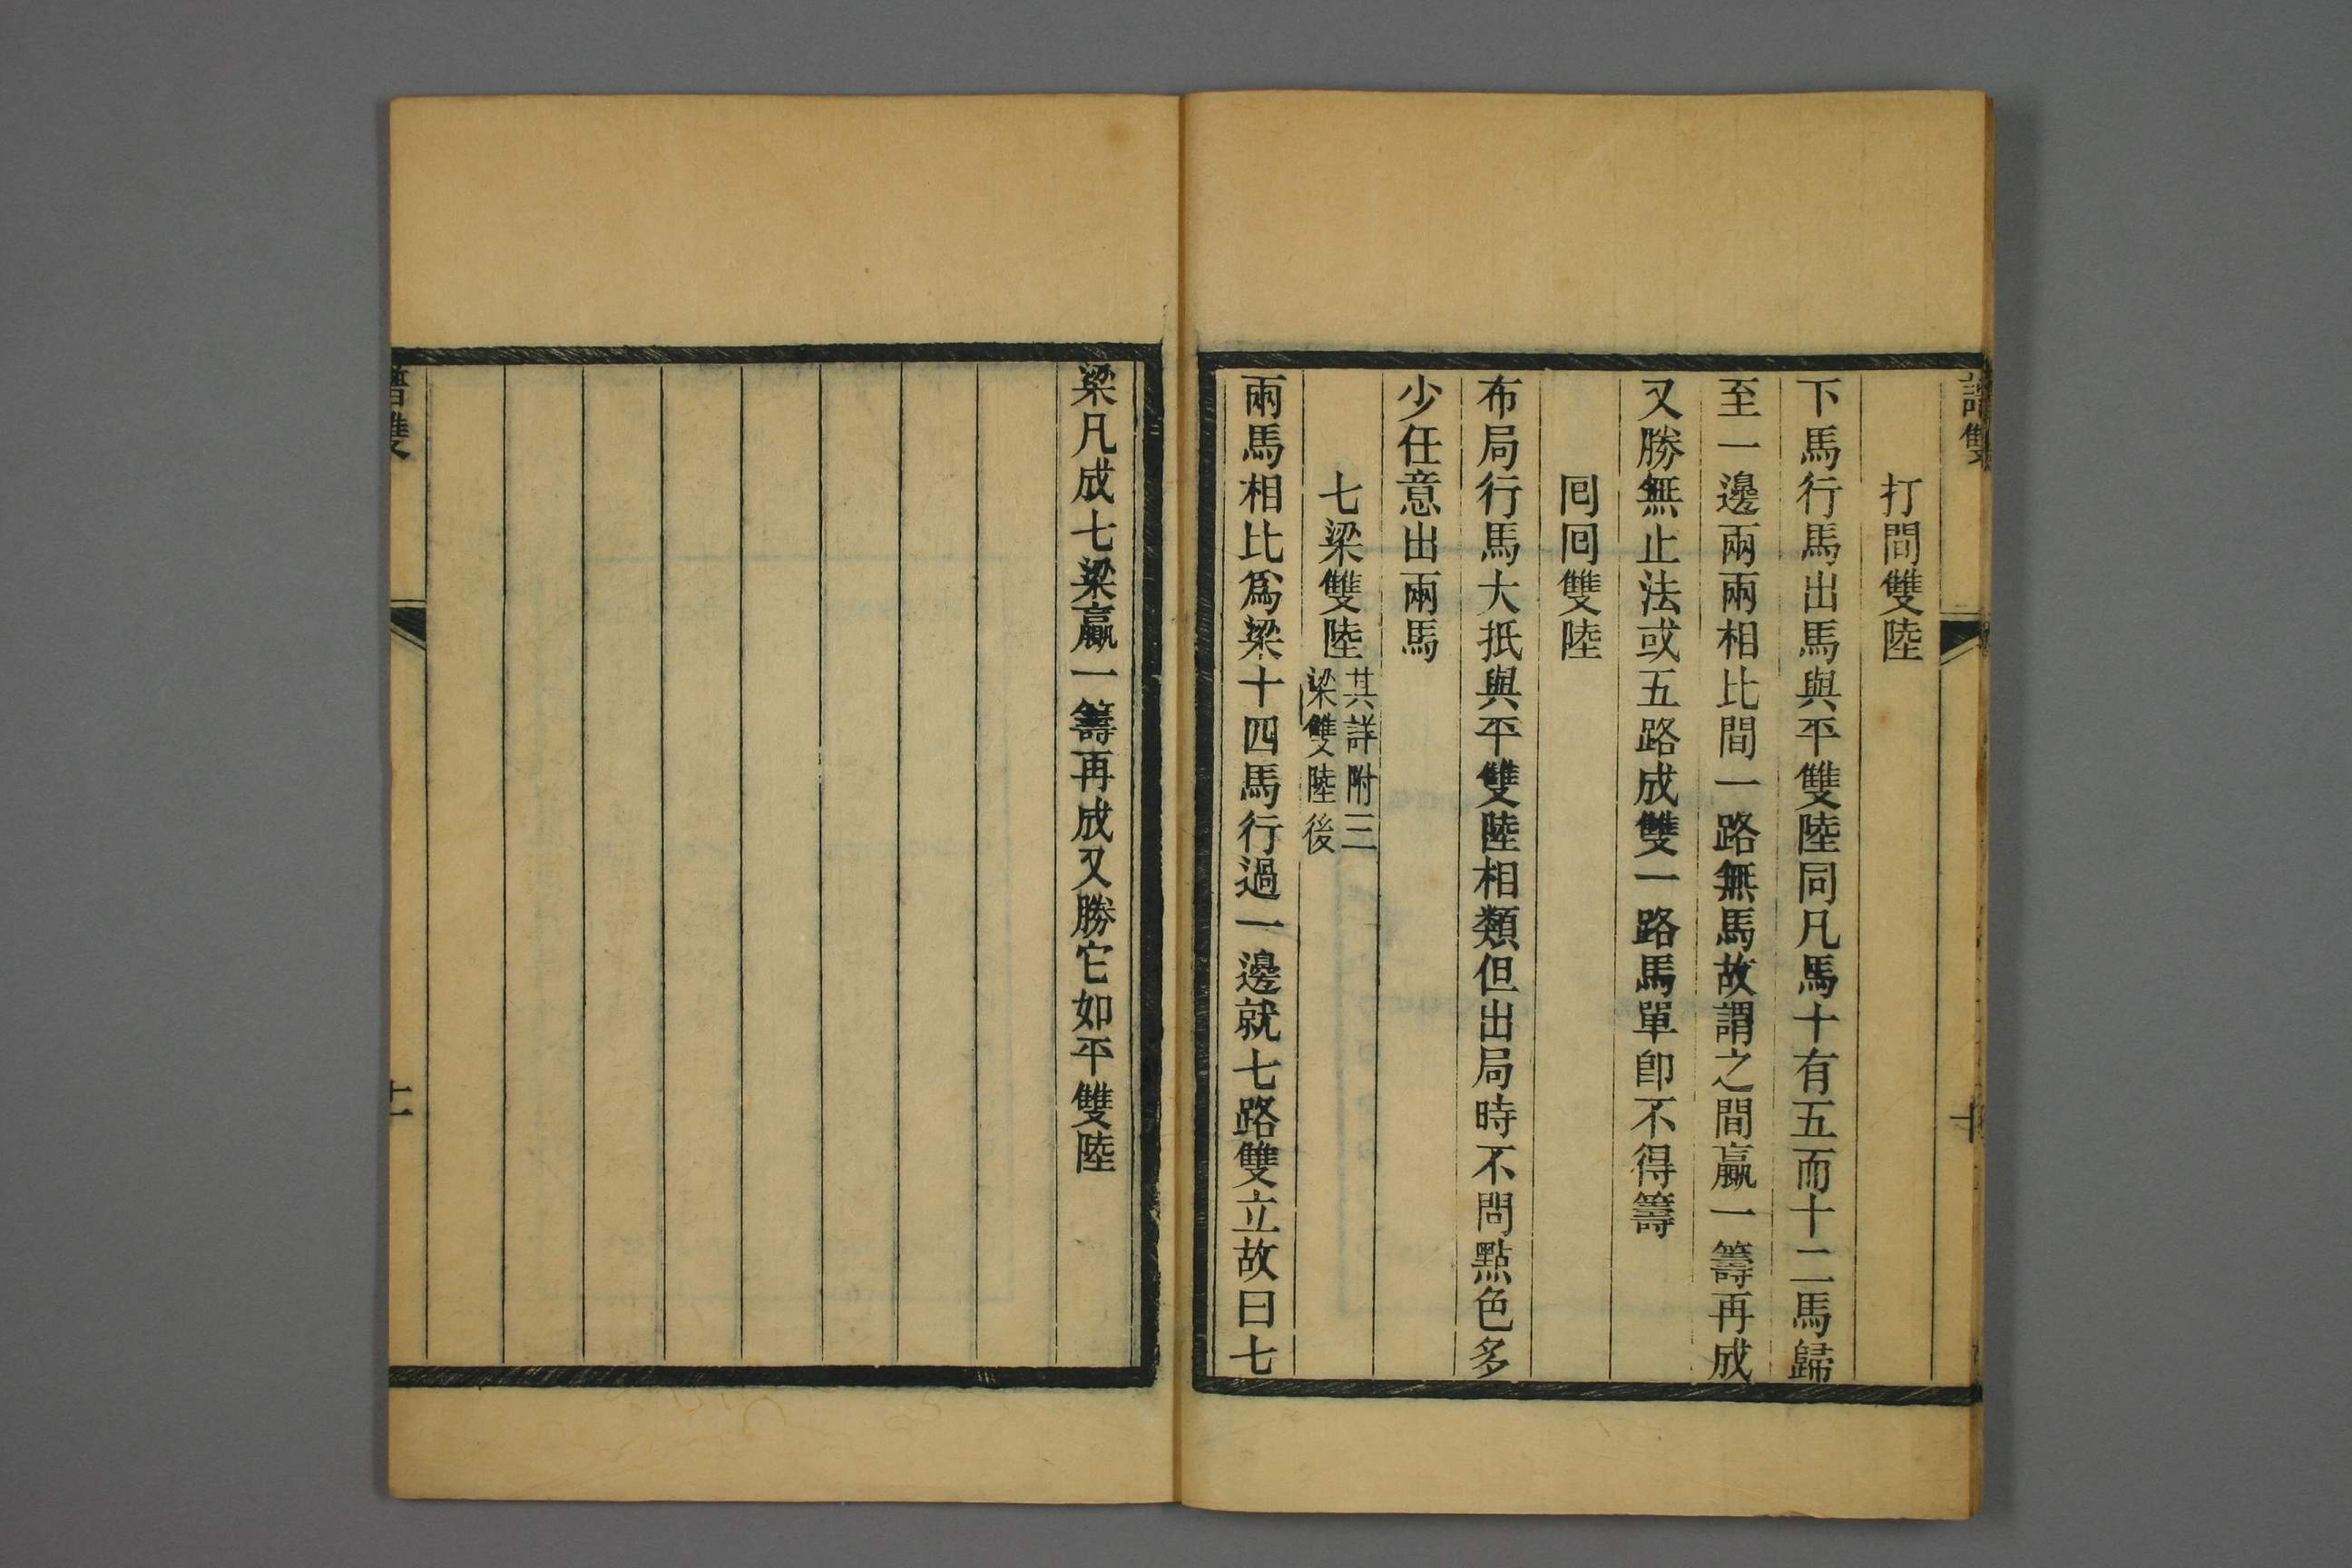 譜雙
十
打間雙陸
下馬行馬出馬與平雙陸同凡馬十有五而十二馬歸
至一邊兩兩相比間一路無馬故謂之間贏一籌再成
又勝無止法或五路成雙一路馬單卽不得籌
囘囘雙陸
布局行馬大抵與平雙陸相類但出局時不問點色多
少任意出兩馬
七梁雙陸其詳附三
梁雙陸後
兩馬相比爲梁十四馬行過一邊就七路雙立故曰七
梁凡成七梁贏一籌再成又勝它如平雙陸
譜雙